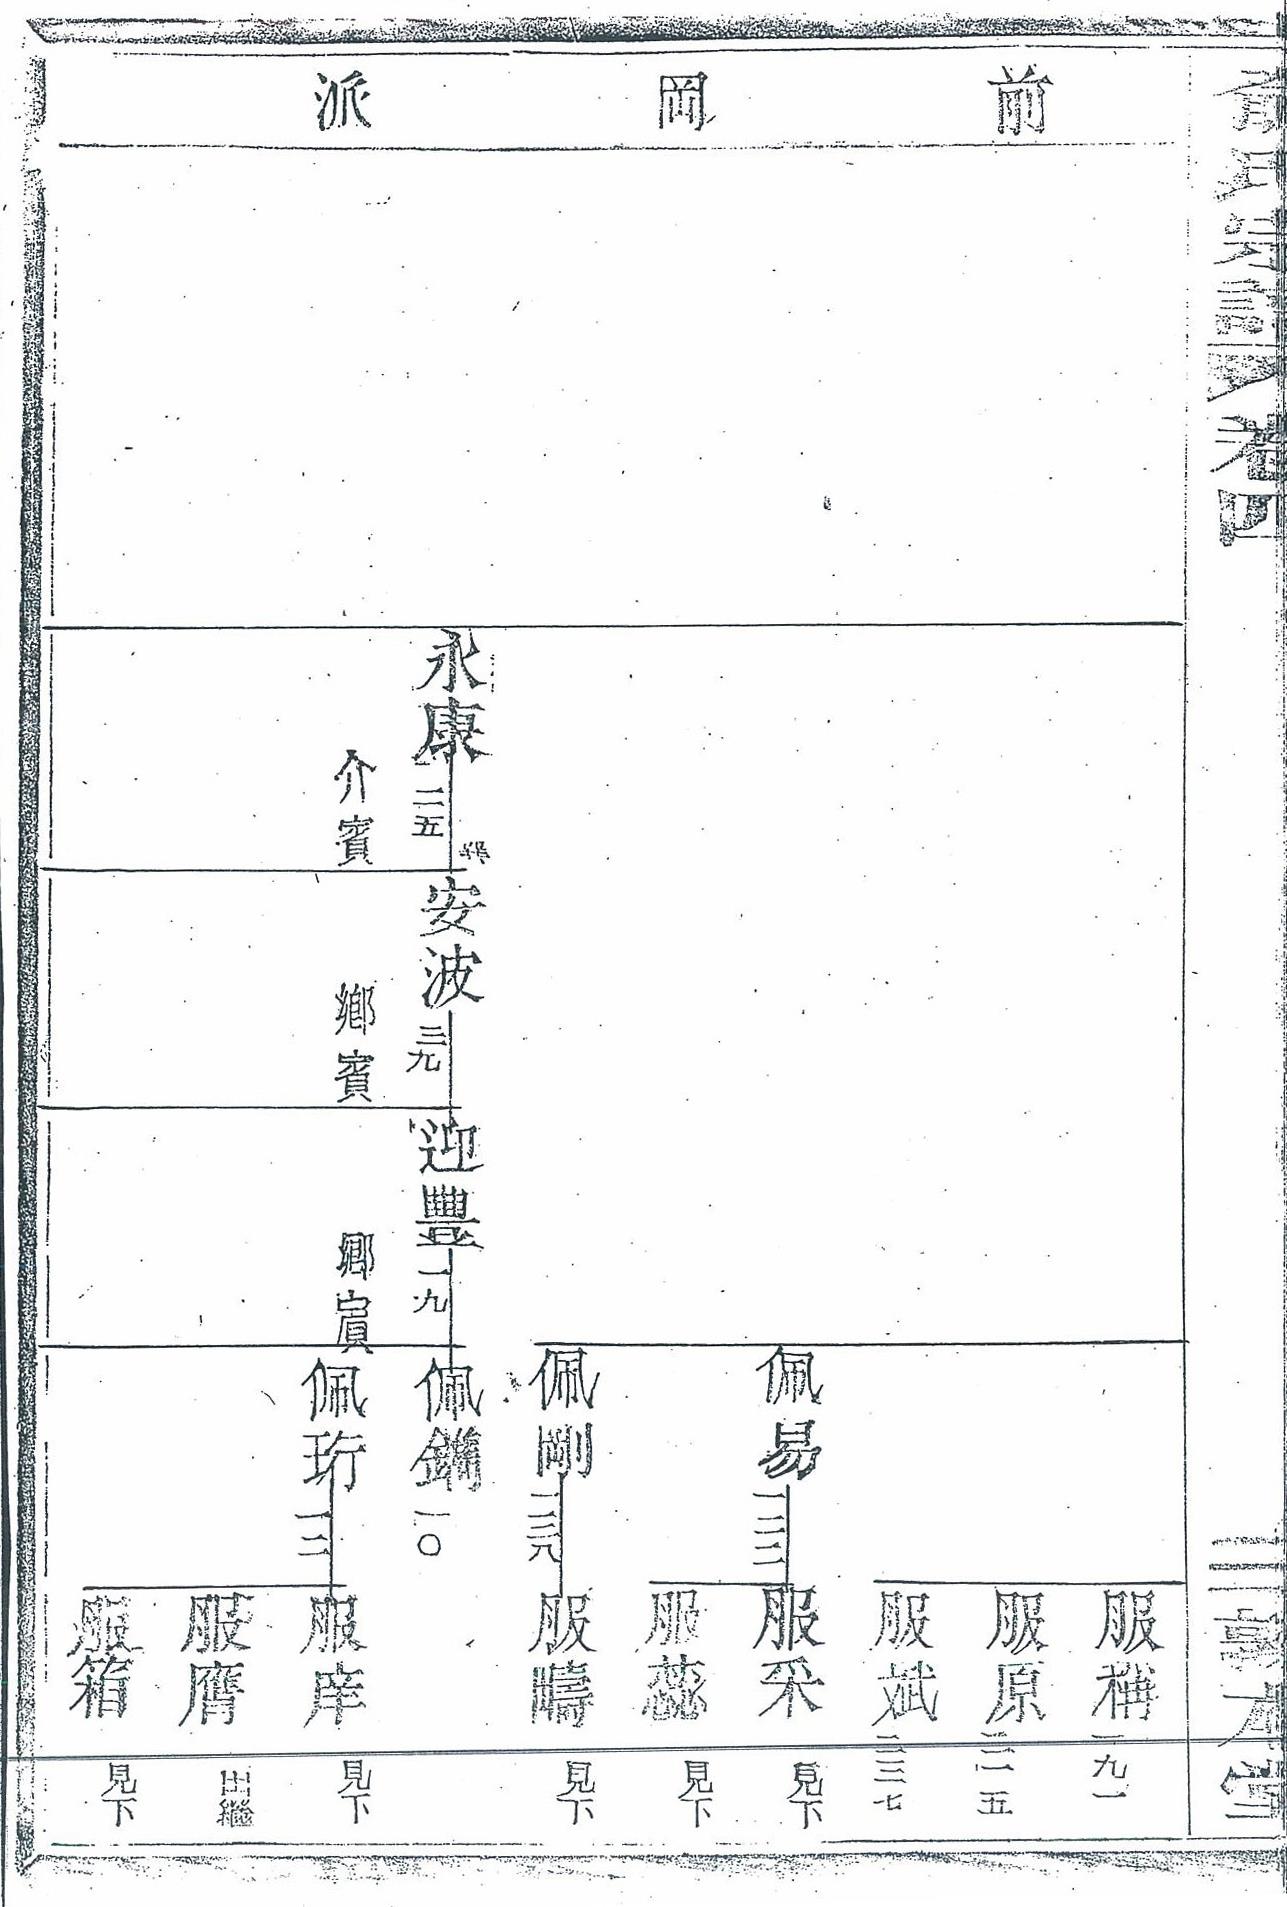 前岡派
卷四
敦本堂
永康 二五
介賓
安波 三九
鄉賓
迎豐 一九
鄉賓
佩易
佩剛
佩鏞 一〇
佩珩
服稱 一九一
服原
服斌
服采 見下
服蕊 見下
服疇 見下
服庠 見下
服膺 出繼
服箱 見下